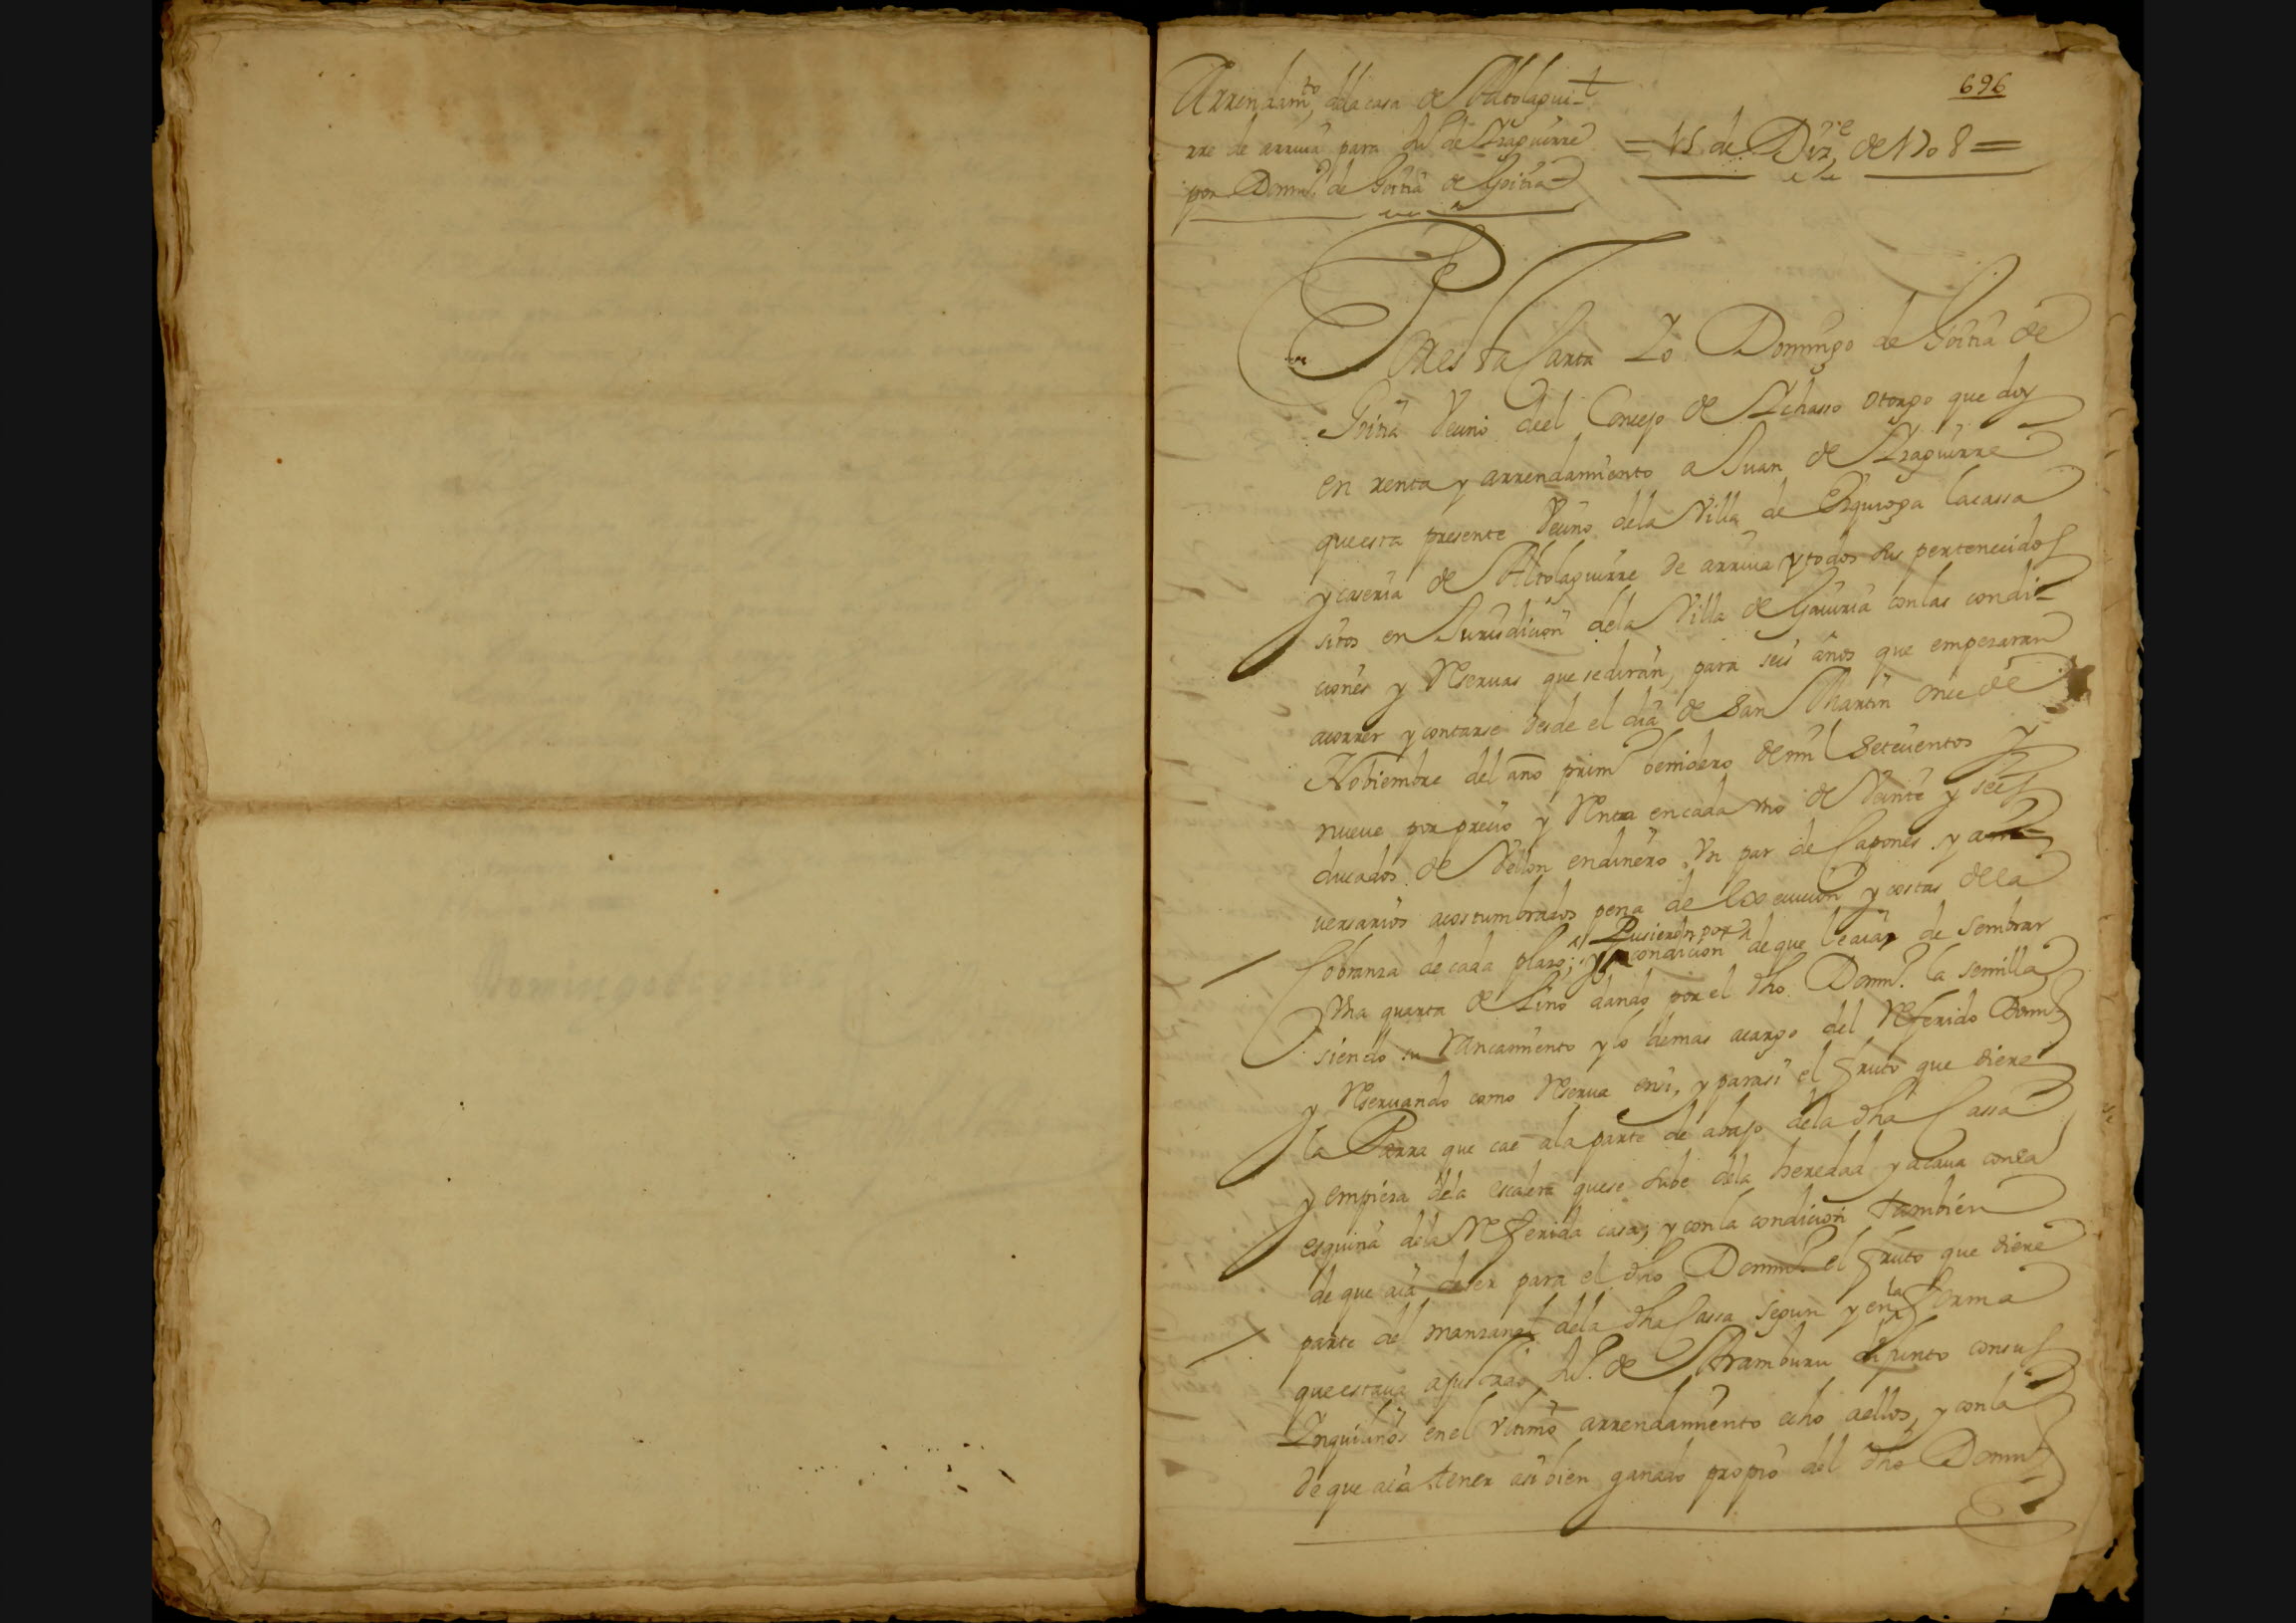 696
Arrendamto dela casa de Altolagui-
rre de arriua para Ju° de Yraguirre
por Domo de Goitia de Goitia
= 15 de Dize de 1708 =
Por esta Carta Yo Domingo de Goitia de
Goitia Vecino deel Concejo de Ychasso otorgo que doy
en renta y arrendamiento a Juan de Yraguirre
que esta presente Vecino dela Villa de Ezquioga la cassa
y caseria de Altolaguirre de arriua y todos sus pertenecidos
sitos en Jurisdicion dela Villa de Gauiria con las condi-
ciones y Reseruas que se diran, para seis años que empezaran
acorrer y contarse desde el dia de San Martin once de
Nobiembre del año primo benidero de mil setecientos y
nueue por precio y Renta en cada vno de Veinte y seis
ducados de Vellon en dinero Vn par de Capones y ani-
uersarios acostumbrados pena de execucion y costas dela
Cobranza de cada plazo; y Pusieron por condicion de que le aia de sembrar
Vna quarta de Lino dando por el dho Domo la semilla
siendo su Rancamiento y lo demas acargo del Referido Domo
y Reseruando como Reserua ensi, y parasi el fruto que diere
la Parra que cae ala parte de abajo dela dha Cassa
y empieza dela escalera que se sube dela heredad y acaua conla
esquina dela Referida casa; y con la condicion tambien
de que aia de ser para el dho Domo el fruto que diere
parte del manzanal dela dha Cassa segun y en la forma
que estaua ajustado Ju° de Aramburu difunto consus
Ynquilinos en el vltimo arrendamiento echo aellos, y conla
de que aia tener asi bien ganado propio del dho Domo